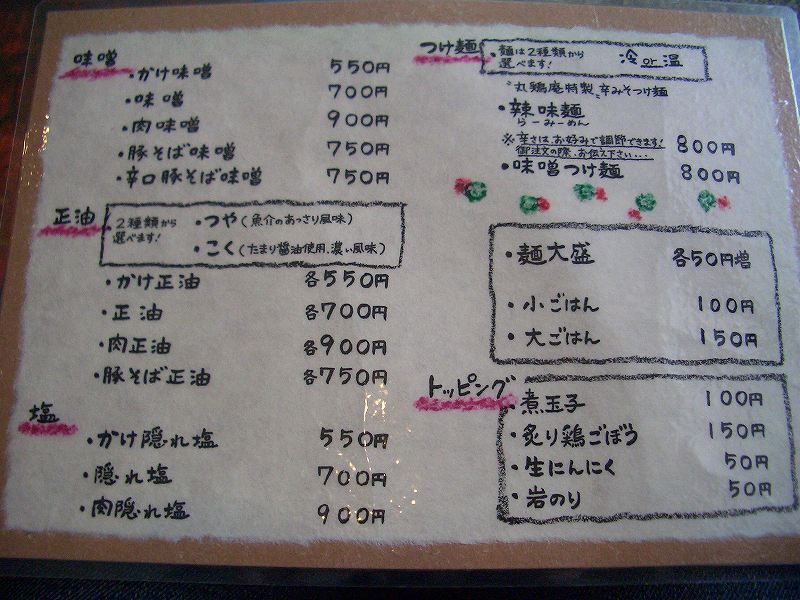 味噌
・かけ味噌 550円
・味噌 700円
・肉味噌 900円
・豚そば味噌 750円
・辛口豚そば味噌 750円
正油
2種類から
選べます!
・つや(魚介のあっさり風味)
・こく(たまり醤油使用、濃い風味)
・かけ正油 各550円
・正油 各700円
・肉正油 各900円
・豚そば正油 各750円
塩
・かけ隠れ塩 550円
・隠れ塩 700円
・肉隠れ塩 900円
つけ麺
・麺は2種類から
選べます!
冷or温
"丸鶏庵特製"辛みそつけ麺
・辣味麺
らーみーめん
※辛さは、お好みで調節できます!
御注文の際、お伝え下さい... 800円
・味噌つけ麺 800円
・麺大盛 各50円増
・小ごはん 100円
・大ごはん 150円
トッピング
・煮玉子 100円
・炙り鶏ごぼう 150円
・生にんにく 50円
・岩のり 50円